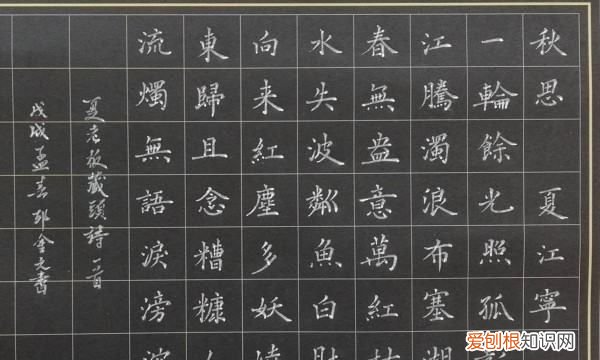 秋思 夏江寧
一輪餘光照孤
江騰濁浪布塞
春無盎意萬紅
水失波粼魚白
向来紅塵多妖
東歸且念糟糠
流燭無語淚滂
夏老板藏頭詩一首
戊戌孟春 書
爱刨根知识网